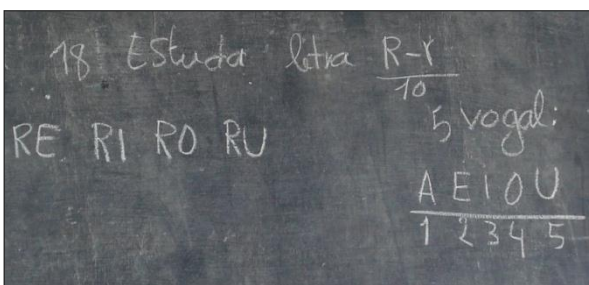 18 Estuda letra R-r
10
5 vogal:
RE RI RO RU
A E I O U
1 2 3 4 5